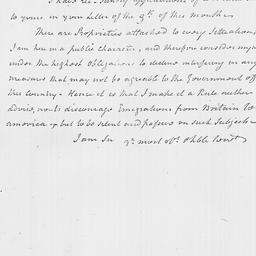 to yours in your Letter of the 9th. of this month
There are Proprieties attached to every Situation,
I am here in a public character, and therefore consider myself
under the highest Obligations to decline interfering in any
measure that may not be agreable to the Government off
this Country. Hence it is that I make it a Rule neither
advise, nor to discourage Emigrations from Britain to
America & but to be silent and passive on such Subjects
I am Sir yr. most obt. & hble Servt